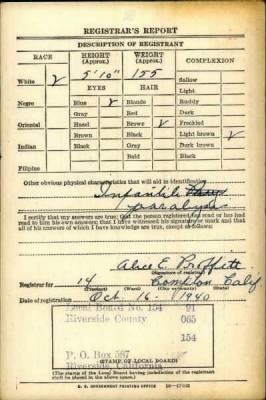 REGISTRAR'S REPORT
DESCRIPTION OF REGISTRANT
RACE HEIGHT (Approx.) WEIGHT (Approx.) COMPLEXION
White ✓ 5'10" 155 Sallow
EYES HAIR Light
Negro Blue ✓ Blonde Ruddy
Gray Red Dark
Oriental Hazel Brown ✓ Freckled
Brown Black Light brown ✓
Indian Black Gray Dark brown
Bald Black
Filipino
Other obvious physical characteristics that will aid in identification
Infantile
paralysis
I certify that my answers are true; that the person registered has read or has had read to him his own answers; that I have witnessed his signature or mark and that all of his answers of which I have knowledge are true, except as follows:
Alice E. Proffitt
(Signature of registrar)
Registrar for 14 Compton Calif.
(Precinct) (Ward) (City or county) (State)
Date of registration Oct. 16 - 1940
Local Board No. 154 91
Riverside County 065
154
P. O. Box 587
Riverside, California
(STAMP OF LOCAL BOARD)
(The stamp of the Local Board having jurisdiction of the registrant shall be placed in the above space.)
U. S. GOVERNMENT PRINTING OFFICE